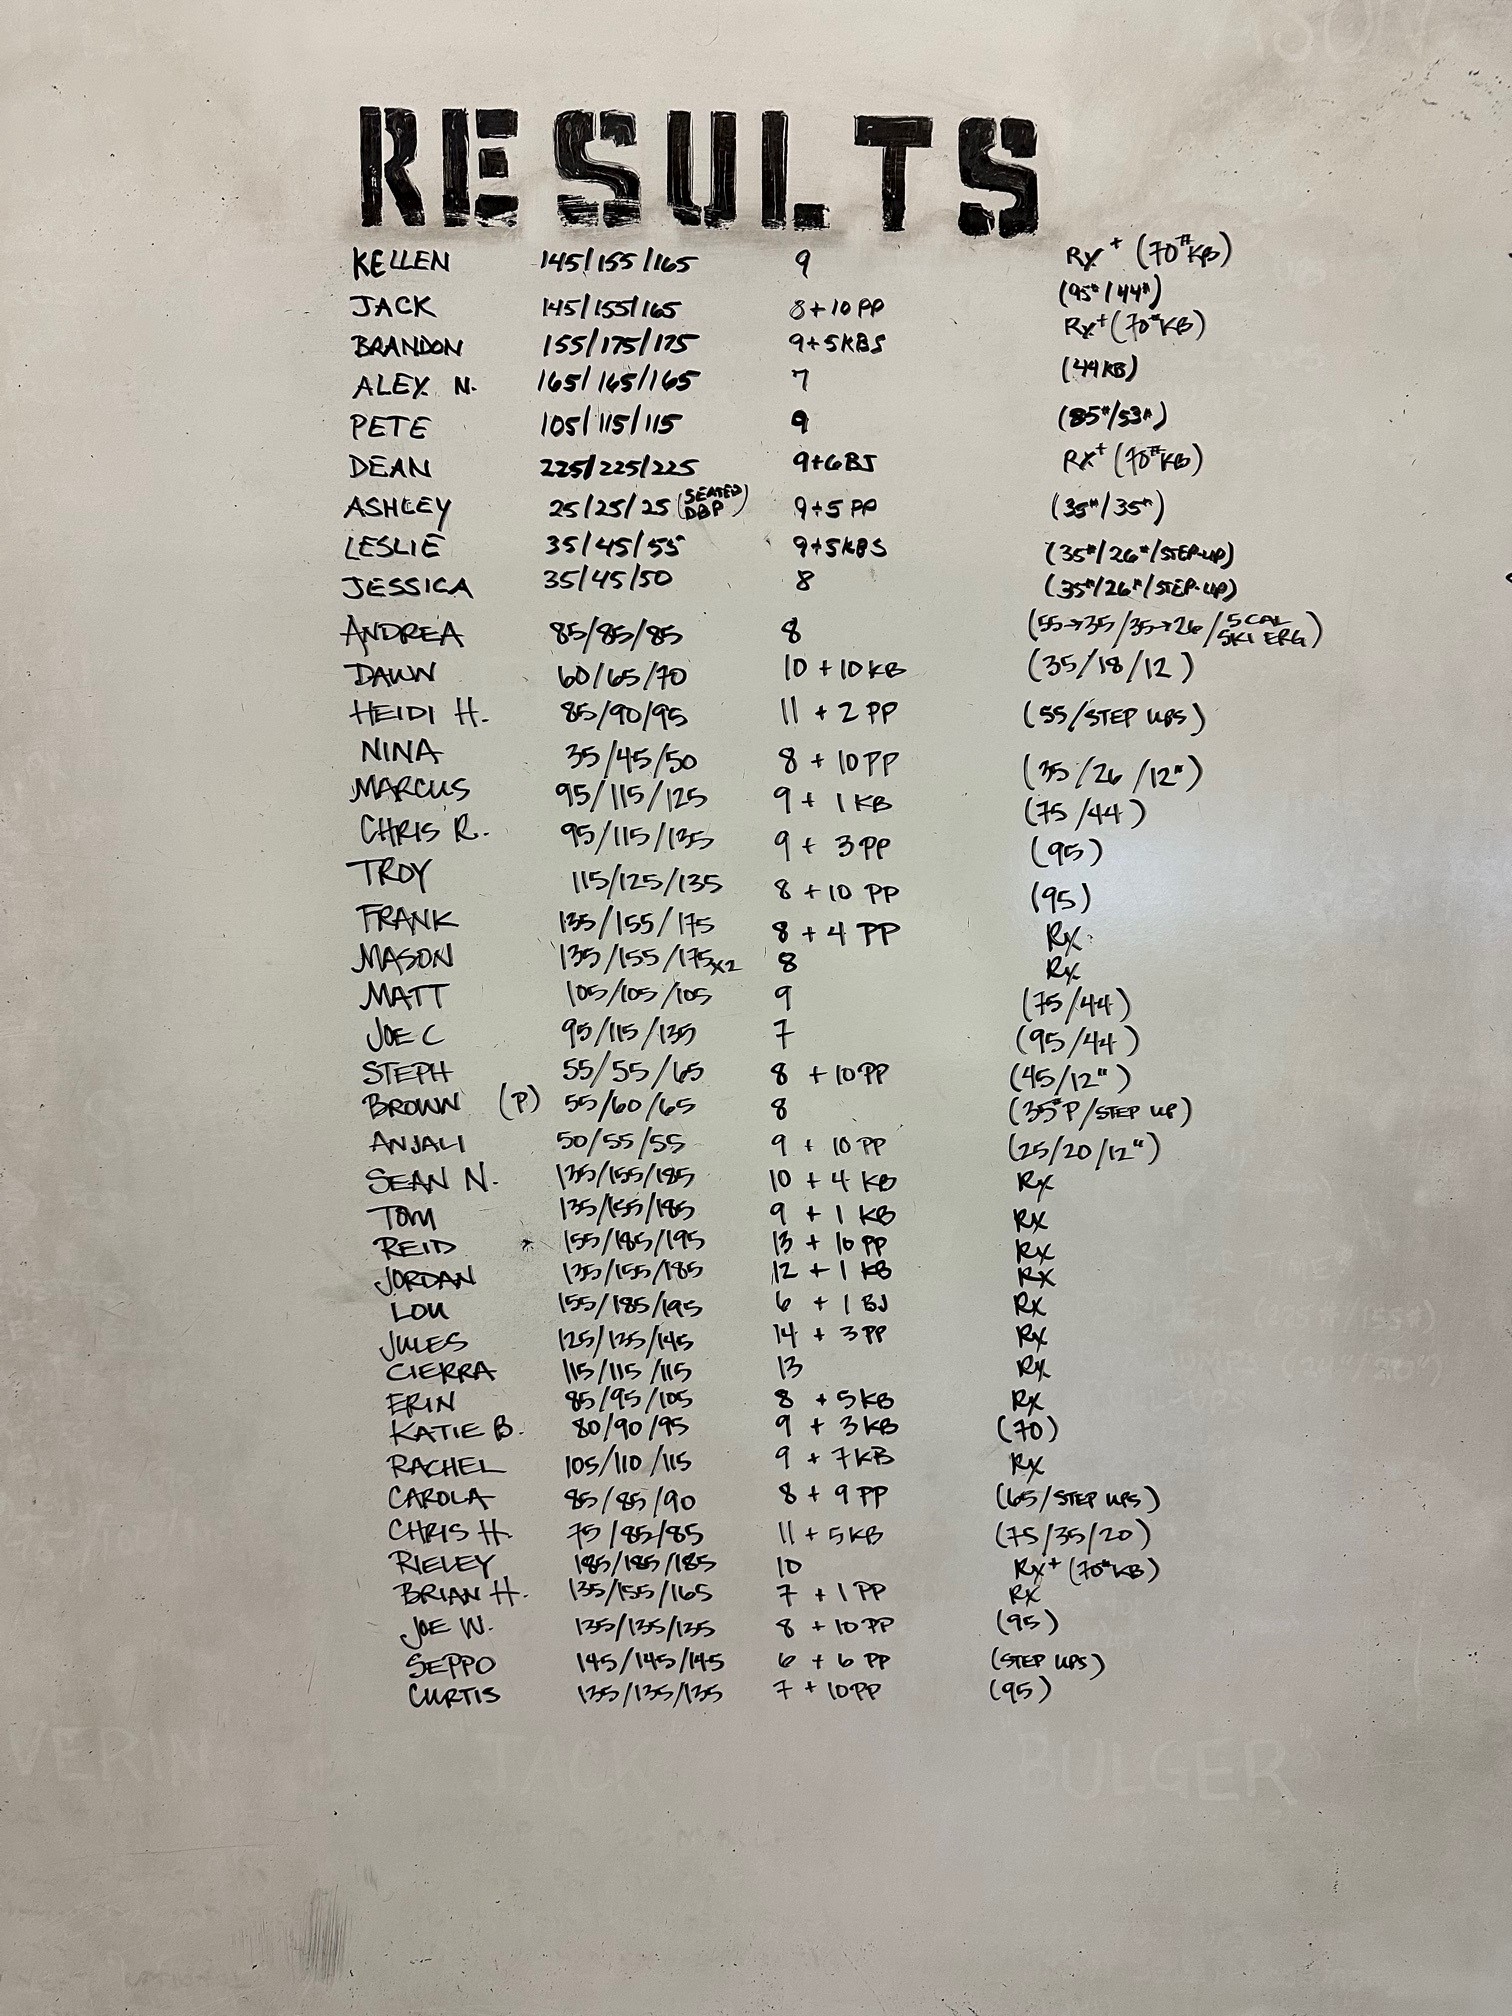 RESULTS
KELLEN 145/155/165 9 Rx+ (70#KB)
JACK 145/155/165 8+10PP (95#/44#)
BRANDON 155/175/175 9+5KBS Rx+(70#KB)
ALEX N. 165/165/165 7 (44KB)
PETE 105/115/115 9 (85#/53#)
DEAN 225/225/225 9+6BJ Rx+(70#KB)
ASHLEY 25/25/25 (SEATED DBP) 9+5 PP (35#/35#)
LESLIE 35/45/55 9+5KBS (35#/26#/STEP-UP)
JESSICA 35/45/50 8 (35#/26#/STEP-UP)
ANDREA 85/85/85 8 (55→35/35→26/5 CAL SKI ERG)
DAWN 60/65/70 10 + 10KB (35/18/12)
HEIDI H. 85/90/95 11 + 2 PP (55/STEP UPS)
NINA 35/45/50 8 + 10PP (35/26/12")
MARCUS 95/115/125 9 + 1 KB (75/44)
CHRIS R. 95/115/135 9 + 3PP (95)
TROY 115/125/135 8 +10 PP (95)
FRANK 135/155/175 8 + 4 PP Rx
MASON 135/155/175x2 8 Rx
MATT 105/105/105 9 (75/44)
JOE C 95/115/135 7 (95/44)
STEPH 55/55/65 8 +10PP (45/12")
BROWN (P) 55/60/65 8 (35#P/STEP UP)
ANJALI 50/55/55 9 + 10PP (25/20/12")
SEAN N. 135/155/185 10 + 4 KB Rx
TOM 135/155/185 9 + 1 KB Rx
REID 155/185/195 13 + 10 PP Rx
JORDAN 135/155/185 12 + 1 KB Rx
LOU 155/185/195 6 + 1 BJ Rx
JULES 125/135/145 14 + 3PP Rx
CIERRA 115/115/115 13 Rx
ERIN 85/95/105 8 +5KB Rx
KATIE B. 80/90/95 9 + 3KB (70)
RACHEL 105/110/115 9 + 7KB Rx
CAROLA 85/85/90 8 + 9 PP (65/STEP UPS)
CHRIS H. 75/85/85 11 + 5KB (75/35/20)
RIELEY 185/185/185 10 Rx+ (70#KB)
BRIAN H. 135/155/165 7 + 1 PP Rx
JOE W. 135/135/135 8 + 10PP (95)
SEPPO 145/145/145 6 + 6 PP (STEP UPS)
CURTIS 135/135/135 7 + 10PP (95)
VERIN JACK BULGER"